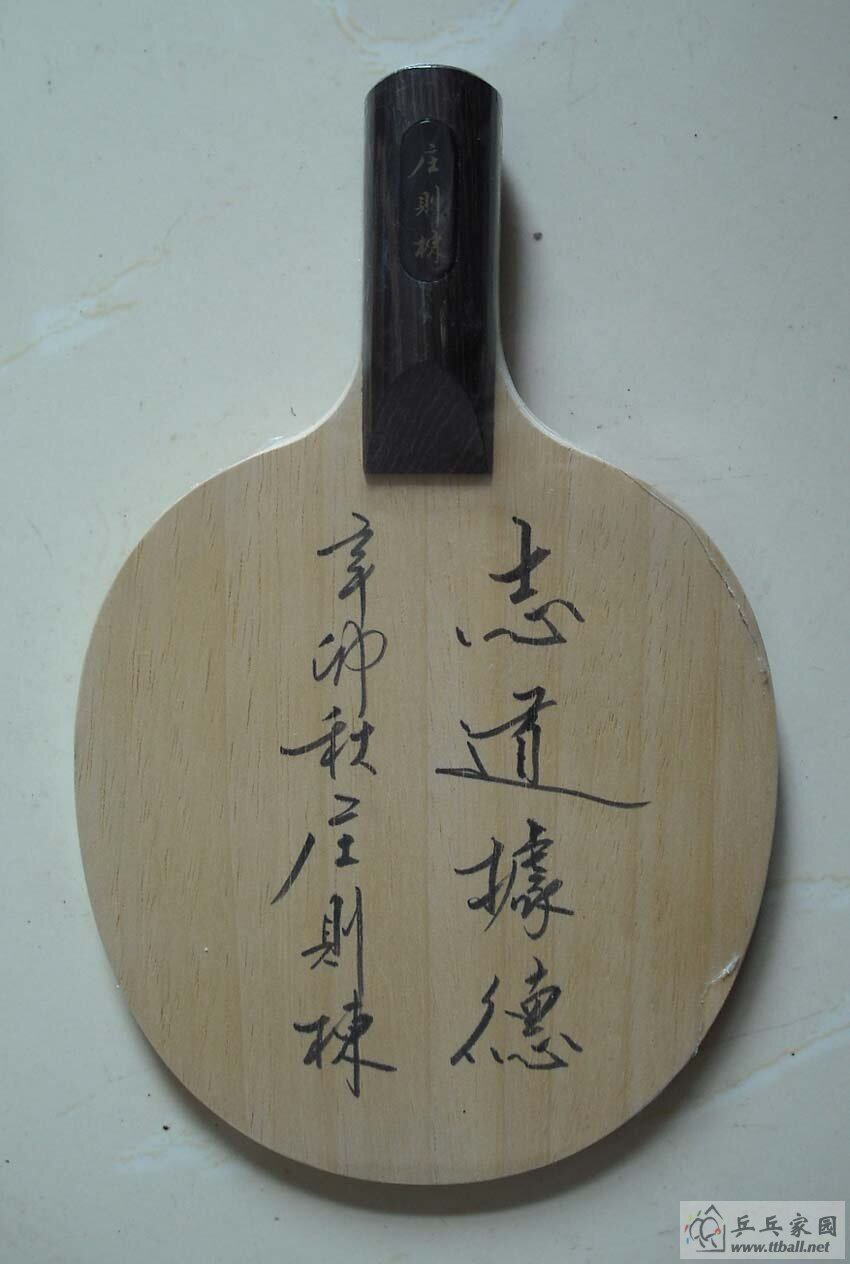 庄則棟
志道據德
辛卯秋庄則棟
乒乓家园
www.ttball.net